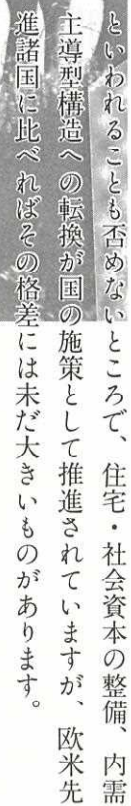 といわれることも否めないところで、住宅・社会資本の整備、内需
主導型構造への転換が国の施策として推進されていますが、欧米先
進諸国に比べればその格差には未だ大きいものがあります。